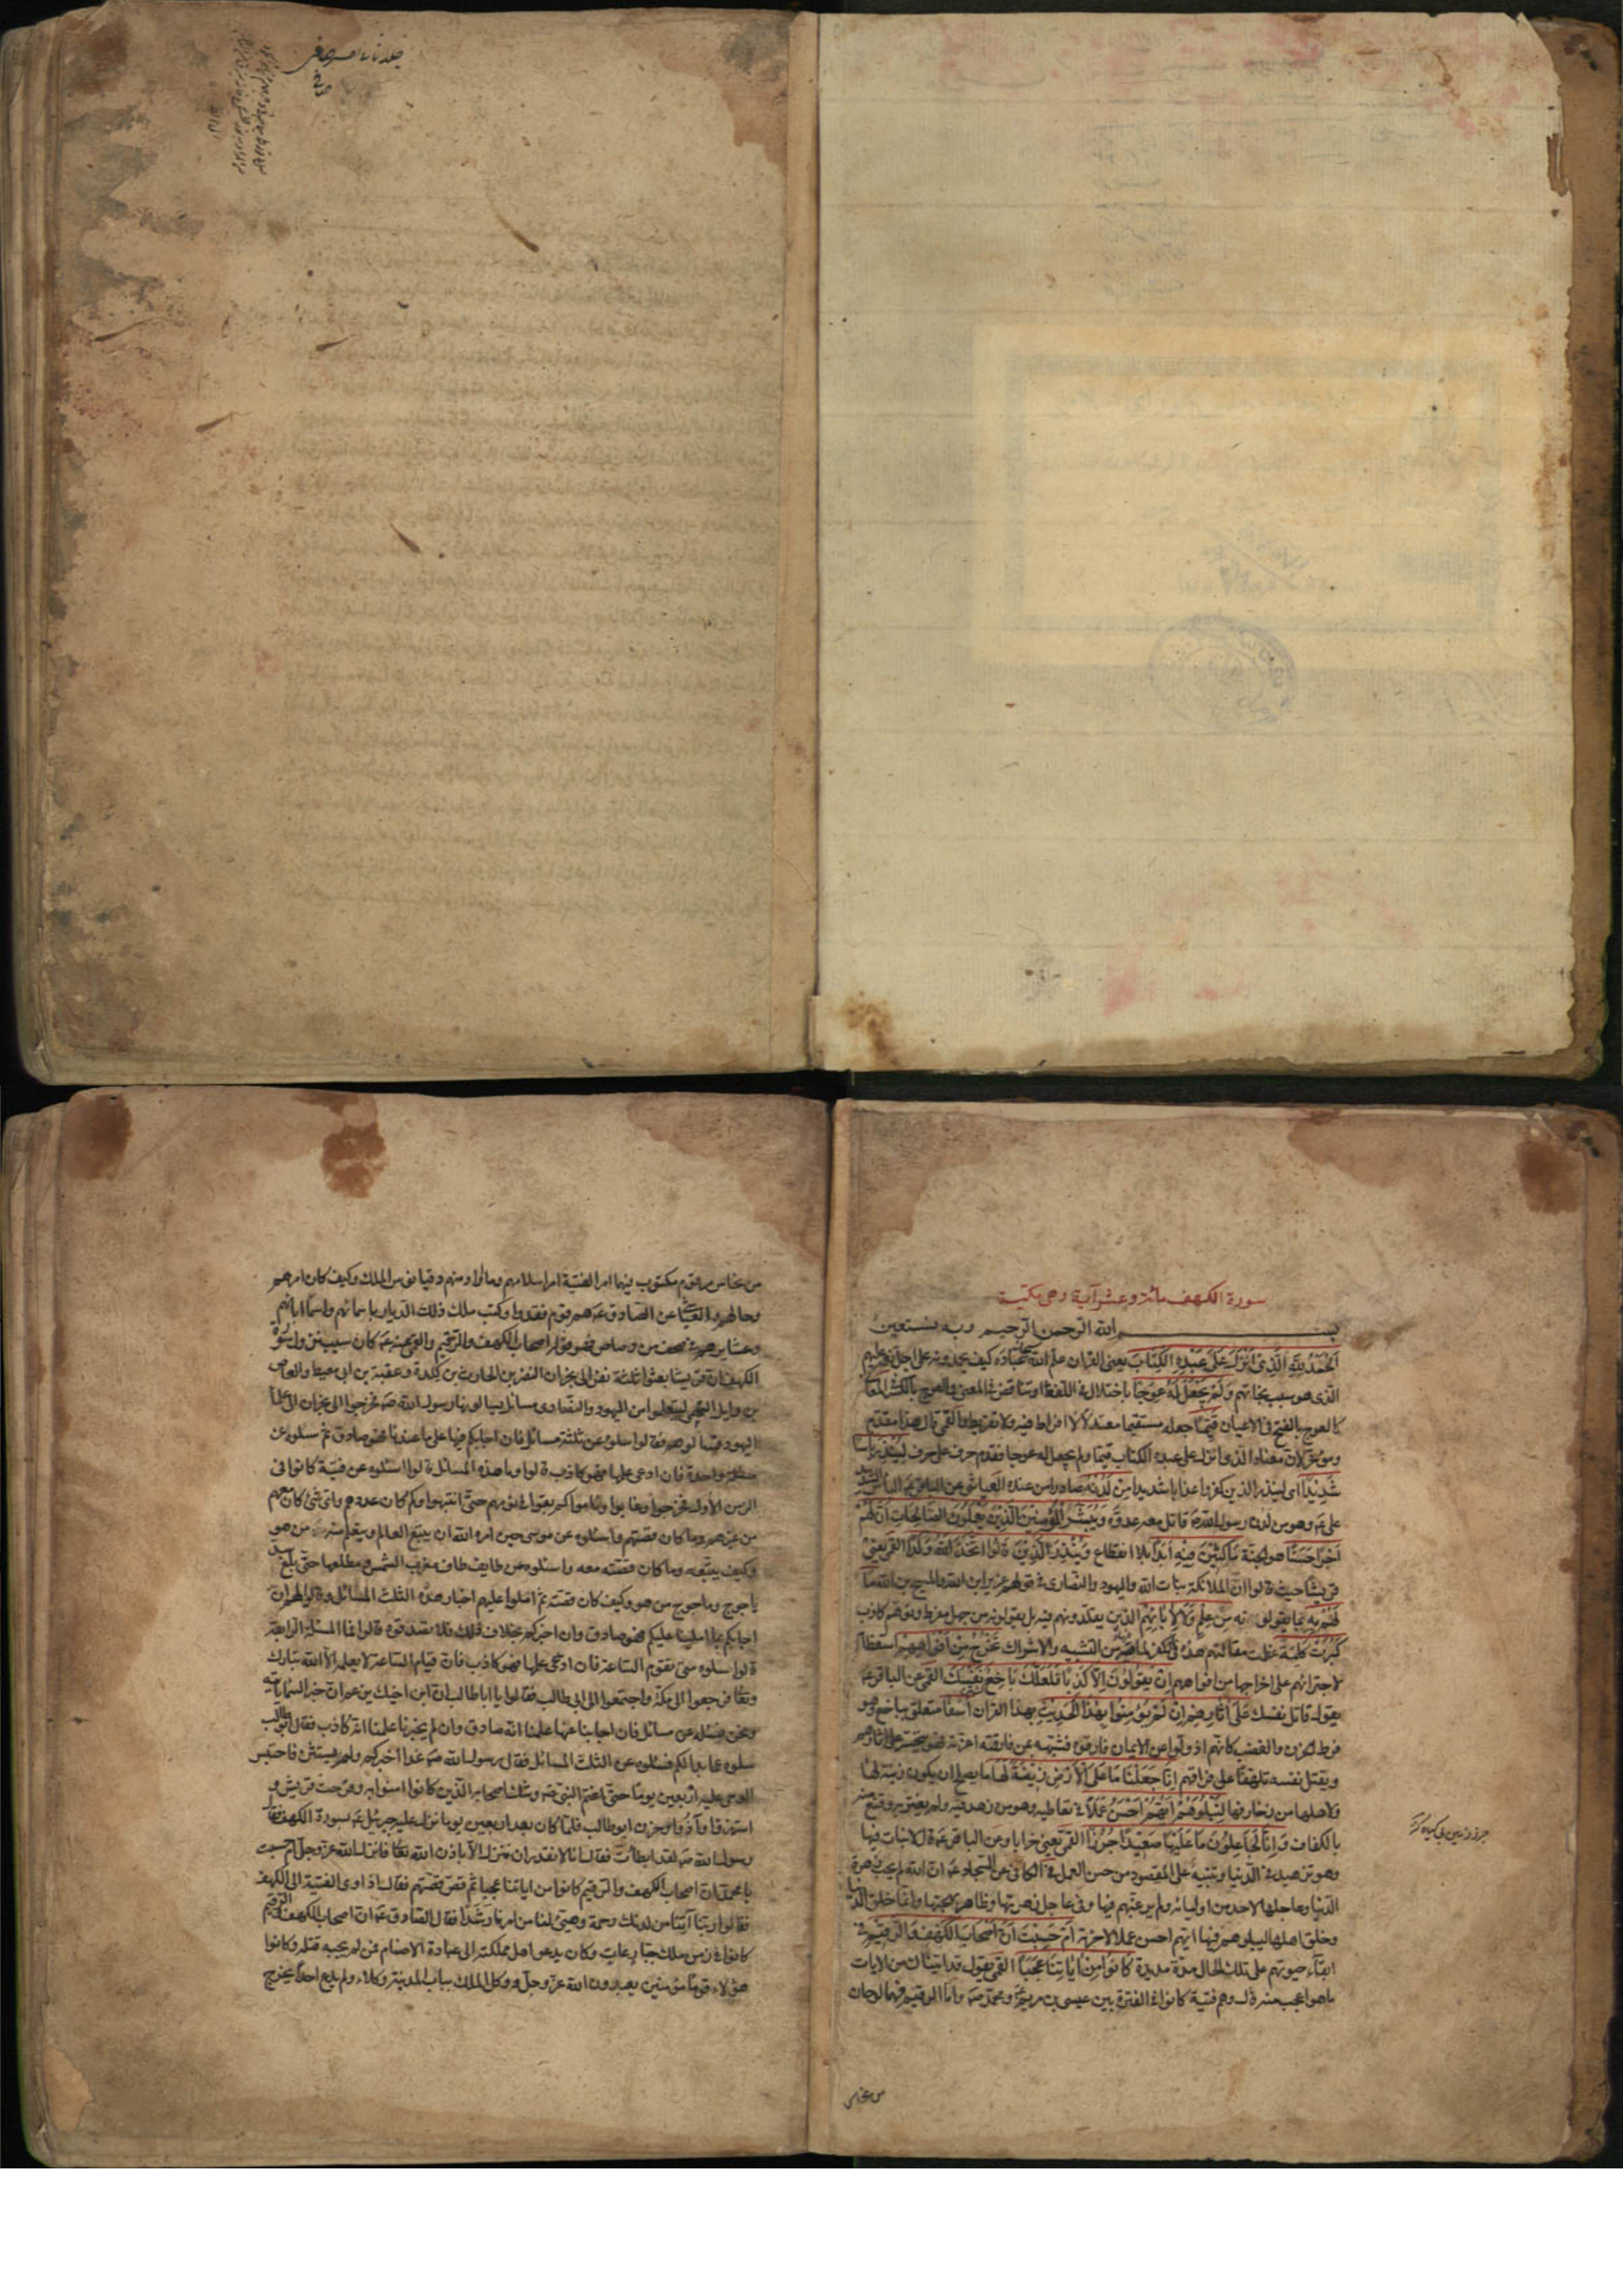 جلد ثانی تفسیر صافی
سورة الكهف مائة وعشر آية وهى مكية
بسم الله الرحمن الرحيم وبه نستعين
اَلْحَمْدُ لِلّٰهِ الَّذِى اَنْزَلَ عَلٰى عَبْدِهِ الْكِتَابَ يعنى القران علم الله سبحانه عباده كيف يحمدونه على اجل نعمه عليهم
الذى هو سبب نجاتهم وَلَمْ يَجْعَلْ لَهُ عِوَجًا باختلال فى اللفظ وتناقض فى المعنى والعوج بالكسر فى المعانى
كالعوج بالفتح فى الاعيان قَيِّمًا جعله مستقيما معتدلا لا افراط فيه ولا تفريط والقمى قال هذا مقدم
وموخر لان معناه الذى انزل على عبده الكتاب قيما ولم يجعل له عوجا فقدم حرف على حرف لِيُنْذِرَ بَأْسًا
شَدِيْدًا اى لينذر الذين كفروا عذابا شديدا مِنْ لَدُنْهُ صادرا من عنده العياشى عن الباقر ع البأس الشديد
على ع وهو من لدن رسول الله ص قاتل معه عدوه وَيُبَشِّرَ الْمُؤْمِنِيْنَ الَّذِيْنَ يَعْمَلُوْنَ الصَّالِحَاتِ اَنَّ لَهُمْ
اَجْرًا حَسَنًا هو الجنة مَاكِثِيْنَ فِيْهِ اَبَدًا بلا انقطاع وَيُنْذِرَ الَّذِيْنَ قَالُوا اتَّخَذَ اللهُ وَلَدًا القمى يعنى
قريشا حيث قالوا ان الملائكة بنات الله واليهود والنصارى فى قولهم عزير ابن الله والمسيح ابن الله مَا
لَهُمْ بِهِ بما يقولون مِنْ عِلْمٍ وَلَا لِاٰبَائِهِمْ الذين يقلدونهم فيه بل يقولونه من جهل مفرط وتوهم كاذب
كَبُرَتْ كَلِمَةً عظمت مقالتهم هذه فى الكفر لما فيه من التشبيه والاشراك تَخْرُجُ مِنْ اَفْوَاهِهِمْ استعظام
لاجترائهم على اخراجها من افواههم اِنْ يَقُوْلُوْنَ اِلَّا كَذِبًا فَلَعَلَّكَ بَاخِعٌ نَفْسَكَ القمى عن الباقر ع
يقول قاتل نفسك عَلٰى اٰثَارِهِمْ اِنْ لَمْ يُؤْمِنُوْا بِهٰذَا الْحَدِيْثِ بهذا القران اَسَفًا متعلق بباخع وهو
فرط الحزن والغضب كانهم اذ ولوا عن الايمان فارقوه فشبهه بمن فارقته اعزته فهو يتحسر على اثارهم
ويقتل نفسه تلهفا على فراقهم اِنَّا جَعَلْنَا مَا عَلَى الْاَرْضِ زِيْنَةً لَهَا ما يصلح ان يكون زينة لها
ولاهلها من زخارفها لِنَبْلُوَهُمْ اَيُّهُمْ اَحْسَنُ عَمَلًا فى تعاطيه وهو من زهد فيه ولم يغتر به وقنع منه
بالكفاف وَاِنَّا لَجَاعِلُوْنَ مَا عَلَيْهَا صَعِيْدًا جُرُزًا القمى يعنى خرابا وعن الباقر ع قال لا نبات فيها
وهو تزهيد فى الدنيا وتنبيه على المقصود من حسن العمل فى الكافى عن السجاد ع ان الله لم يحب زهرة
الدنيا وعاجلها لاحد من اوليائه ولم يرغبهم فيها وفى عاجل زهرتها وظاهر بهجتها وانما خلق الدنيا
وخلق اهلها ليبلوهم فيها ايهم احسن عملا لاخرته اَمْ حَسِبْتَ اَنَّ اَصْحَابَ الْكَهْفِ وَالرَّقِيْمِ فى
ابقاء حيوتهم على تلك الحال مدة مديدة كَانُوْا مِنْ اٰيَاتِنَا عَجَبًا القمى يقول قد اتيناك من الايات
ما هو اعجب منه قال وهم فتية كانوا فى الفترة بين عيسى بن مريم ع ومحمد ص واما الرقيم فهما لوحان
من نحاس
من نحاس مرقوم مكتوب فيهما امر الفتية امر اسلامهم وما اراد منهم دقيانوس الملك وكيف كان امرهم
وحالهم والعياشى عن الصادق ع هم قوم فقدوا وكتب ملك ذلك الديار باسمائهم واسماء ابائهم
وعشايرهم فى صحف من رصاص فهو قوله اصحاب الكهف والرقيم والقمى عنه ع كان سبب نزول سورة
الكهف ان قريشا بعثوا ثلثة نفر الى نجران النضر بن الحارث بن كلدة وعقبة بن ابى معيط والعاص
بن وايل السهمى ليتعلموا من اليهود والنصارى مسائل يسالونها رسول الله ص فخرجوا الى نجران الى علماء
اليهود فسالوهم فقالوا سلوه عن ثلثة مسائل فان اجابكم فيها على ما عندنا فهو صادق ثم سلوه عن
مسئلة واحدة فان ادعى علمها فهو كاذب قالوا وما هذه المسائل قالوا اسئلوه عن فتية كانوا فى
الزمن الاول فخرجوا وغابوا وناموا كم بقوا فى نومهم حتى انتبهوا وكم كان عددهم واى شئ كان معهم
من غيرهم وما كان قصتهم واسئلوه عن موسى حين امره الله ان يتبع العالم ويتعلم منه من هو
وكيف يتبعه وما كان قصته معه واسئلوه عن طايف طاف مغرب الشمس ومطلعها حتى بلغ سد
ياجوج وماجوج من هو وكيف كان قصته ثم املوا عليهم اخبار هذه الثلث المسائل وقالوا لهم ان
اجابكم بما املينا عليكم فهو صادق وان اخبركم بخلاف ذلك فلا تصدقوه قالوا فما المسئلة الرابعة
قالوا سلوه متى تقوم الساعة فان ادعى علمها فهو كاذب فان قيام الساعة لا يعلمه الا الله تبارك
وتعالى فرجعوا الى مكة واجتمعوا الى ابى طالب فقالوا يا اباطالب ان ابن اخيك يزعم ان خبر السماء ياتيه
ونحن نسئله عن مسائل فان اجابنا عنها علمنا انه صادق وان لم يخبرنا علمنا انه كاذب فقال ابوطالب
سلوه عما بدا لكم فسئلوه عن الثلث المسائل فقال رسول الله ص غدا اخبركم ولم يستثن فاحتبس
الوحى عليه اربعين يوما حتى اغتم النبى ص وشك اصحابه الذين كانوا امنوا به وفرحت قريش و
استهزؤا وآذوا وحزن ابوطالب فلما كان بعد اربعين يوما نزل عليه جبرئيل ع بسورة الكهف فقال
رسول الله ص لقد ابطأت فقال انا لا نقدر ان ننزل الا باذن الله تعالى فانزل الله عز وجل ام حسبت
يا محمد ان اصحاب الكهف والرقيم كانوا من اياتنا عجبا ثم قص قصتهم فقال اذ اوى الفتية الى الكهف
فقالوا ربنا آتنا من لدنك رحمة وهيئ لنا من امرنا رشدا فقال الصادق ع ان اصحاب الكهف والرقيم
كانوا فى زمن ملك جبار عات وكان يدعو اهل مملكته الى عبادة الاصنام فمن لم يجبه قتله وكانوا
هؤلاء قوما مؤمنين يعبدون الله عز وجل ووكل الملك بباب المدينة وكلاء ولم يدع احدا يخرج